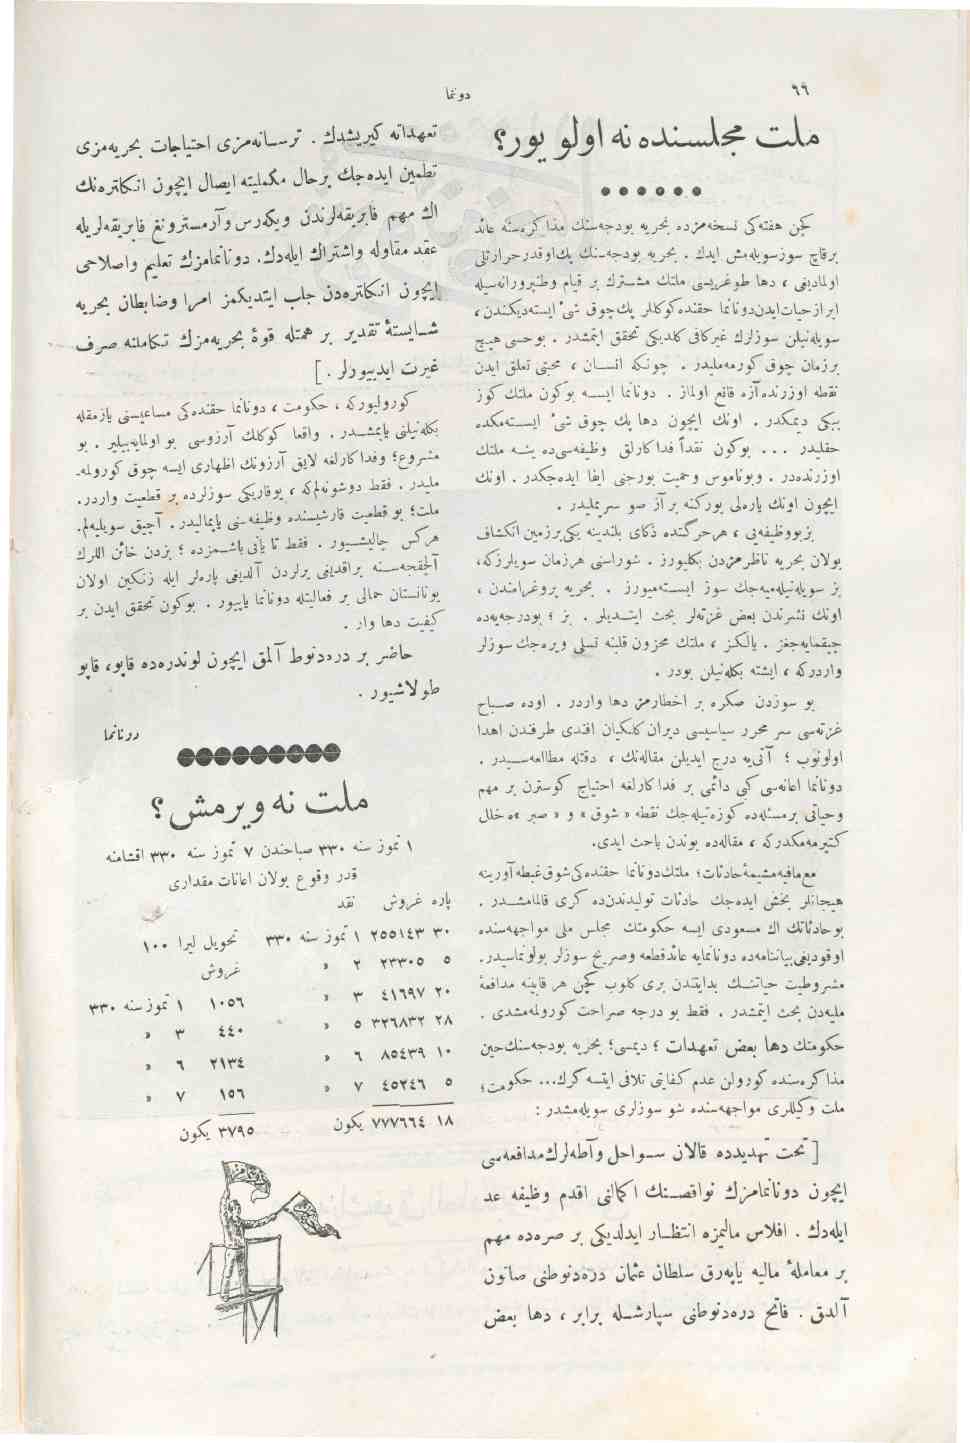 ٦٩
دونما
ملت مجلسنده نه اولو يور؟
كچن هفته‌كى نسخه‌مزده بحريه بودجه‌سنك مذاكره‌سنه عائد
برقاچ سوزسويله‌مش ايدك . بحريه بودجه‌سنك پك‌اوقدر حرارتلى
اولماديغى ، دها طوغريسى ملتك مشترك بر قيام وطنپرورانه‌سيله
ابراز حيات‌ايدن‌دونانما حقنده كوكللر پك‌چوق شئ ايسته‌ديكندن ،
سويله‌نيلن سوزلرك غيركافى كلديكى تحقق ايتمشدر . بوحسى هيچ
برزمان چوق كورمه‌مليدر . چونكه انســان ، محبتى تعلق ايدن
نقطه اوزرنده آزه قانع اولماز . دونانما ايســه بوكون ملتك كوز
ببكى ديمكدر . اونك ايچون دها پك چوق شئ ايســته‌مكده
حقليدر ... بوكون نقداً فداكارلق وظيفه‌سى‌ده ينــه ملتك
اوزرنده‌در . وبوناموس وحميت بورجنى ايفا ايده‌جكدر . اونك
ايچون اونك ياره‌لى يوركنه بر آز صو سرپمليدر .
بزبووظيفه‌يى ، هرحركتده ذكاى بلندينه يكى‌برزمين انكشاف
بولان بحريه ناظرمزدن بكليورز . شوراسنى هرزمان سويلرزكه،
بز سويله‌نيله‌ميه‌جك سوز ايســته‌ميورز . بحريه پروغرامندن ،
اونك نشرندن بعض غزته‌لر بحث ايتــديلر . بز ؛ بودرجه‌يه‌ده
چيقمايه‌جغز . يالكـز ، ملتك محزون قلبنه تسلى ويره‌جك سوزلر
واردركه ، ايشته بكله‌نيلن بودر .
بو سوزدن صكره بر اخطارمز دها واردر . اوده صــباح
غزته‌سى سر محرر سياسيسى ديران كلكيان افندى طرفـدن اهدا
اولونوب ؛ آتى‌يه درج ايديلن مقاله‌نك ، دقتله مطالعه‌ســيدر .
دونانما اعانه‌سى كبى دائمى بر فداكارلغه احتياج كوسترن بر مهم
وحياتى برمسئله‌ده كوزه‌تيله‌جك نقطه « شوق » و « صبر »ه خلل
كتيرمه‌مكدركه ، مقاله‌ده بوندن باحث ايدى.
مع‌مافيه مشيمۀحادثات؛ ملتك‌دونانما حقنده‌كى‌شوق‌غبطه‌آورينه
هيجانلر بخش ايده‌جك حادثات توليدندن‌ده كرى قالمامشــدر .
بوحادثاتك اك مسعودى ايسه حكومتك مجلس ملى مواجهه‌سنده
اوقوديغى‌بياننامه‌ده دونانمايه عائدقطعه وصريح سوزلر بولونماسيدر.
مشروطيت حياتنــك بدايتندن برى كلوب كچن هر قابينه مدافعۀ
مليه‌دن بحث ايتمشدر . فقط بو درجه صراحت كورولمه‌مشدى .
حكومتك دها بعض تعهدات ؛ ديمسى؛ بحريه بودجه‌سنك‌حين
مذاكره‌سنده كورولن عدم كفايتى تلافى ايتسه كرك... حكومت؛
ملت وكيللرى مواجهه‌سنده شو سوزلرى سويله‌مشدر :
[ تحت تهديدده قالان ســواحل وآطه‌لرك‌مدافعه‌سى
ايچون دونانمامزك نواقصــنك اكمالنى اقدم وظيفه عد
ايله‌دك . افلاس ماليمزه انتظــار ايدلديكى بر صره‌ده مهم
بر معاملۀ ماليه ياپه‌رق سلطان عثمان دره‌دنوطنى صاتون
آلدق . فاتح دره‌دنوطنى سپارشــله برابر ، دها بعض
تعهداته كيريشدك . ترســانه‌مزى احتياجات بحريه‌مزى
تطمين ايده‌جك برحال مكمليته ايصال ايچون انكلتره‌نك
اك مهم فابريقه‌لرندن ويكه‌رس وآرمسترونغ فابريقه‌لريله
عقد مقاوله واشتراك ايله‌دك. دونانمامزك تعليم واصلاحى
ايچون انكلتره‌دن جلب ايتديكمز امرا وضابطان بحريه
شــايستۀ تقدير بر همتله قوۀ بحريه‌مزك تكاملنه صرف
غيرت ايدييورلر . ]
كورولييوركه ، حكومت ، دونانما حقنده‌كى مساعيسنى يازمقله
بكله‌نيلنى ياپمشــدر . واقعا كوكلك آرزوسى بو اولمايه‌بيلير . بو
مشروع؛ وفداكارلغه لايق آرزونك اظهارى ايسه چوق كورولمه‌-
مليدر . فقط دوشونه‌لم‌كه ، يوقاريكى سوزلرده بر قطعيت واردر.
ملت؛ بو قطعيت قارشيسنده وظيفه‌سنى ياپماليدر. آجيق سويليه‌لم.
هركس چاليشــيور . فقط تا يانى‌باشــمزده ؛ بزدن خائن اللرك
آلچقجه‌ســنه براقديغى يرلردن آلديغى پاره‌لر ايله زنكين اولان
يونانستان حمالى بر فعاليتله دونانما ياپيور . بوكون تحقق ايدن بر
كيفيت دها وار .
حاضر بر دره‌دنوط آلمق ايچون لوندره‌ده قاپو، قاپو
طولاشيور .
دونانما
ملت نه ويرمش ؟
١ تموز سنه ٣٣٠ صباحندن ٧ تموز سنه ٣٣٠ اقشامنه
قدر وقوع بولان اعانات مقدارى
پاره غروش نقد
٣٠ ٢٥٥١٤٣ ١ تموز سنه ٣٣٠
٥ ٢٣٣٠٥ ٢ »
٢٠ ٤١٦٩٧ ٣ »
٢٨ ٣٢٦٨٣٢ ٥ »
١٠ ٨٥٤٣٩ ٦ »
٥ ٤٥٢٤٦ ٧ »
١٨ ٧٧٧٦٦٤ يكون
تحويل ليرا ١٠٠
غروش
١٠٥٦ ١ تموز سنه ٣٣٠
٤٤٠ ٣ »
٢١٣٤ ٦ »
١٥٦ ٧ »
٣٧٩٥ يكون